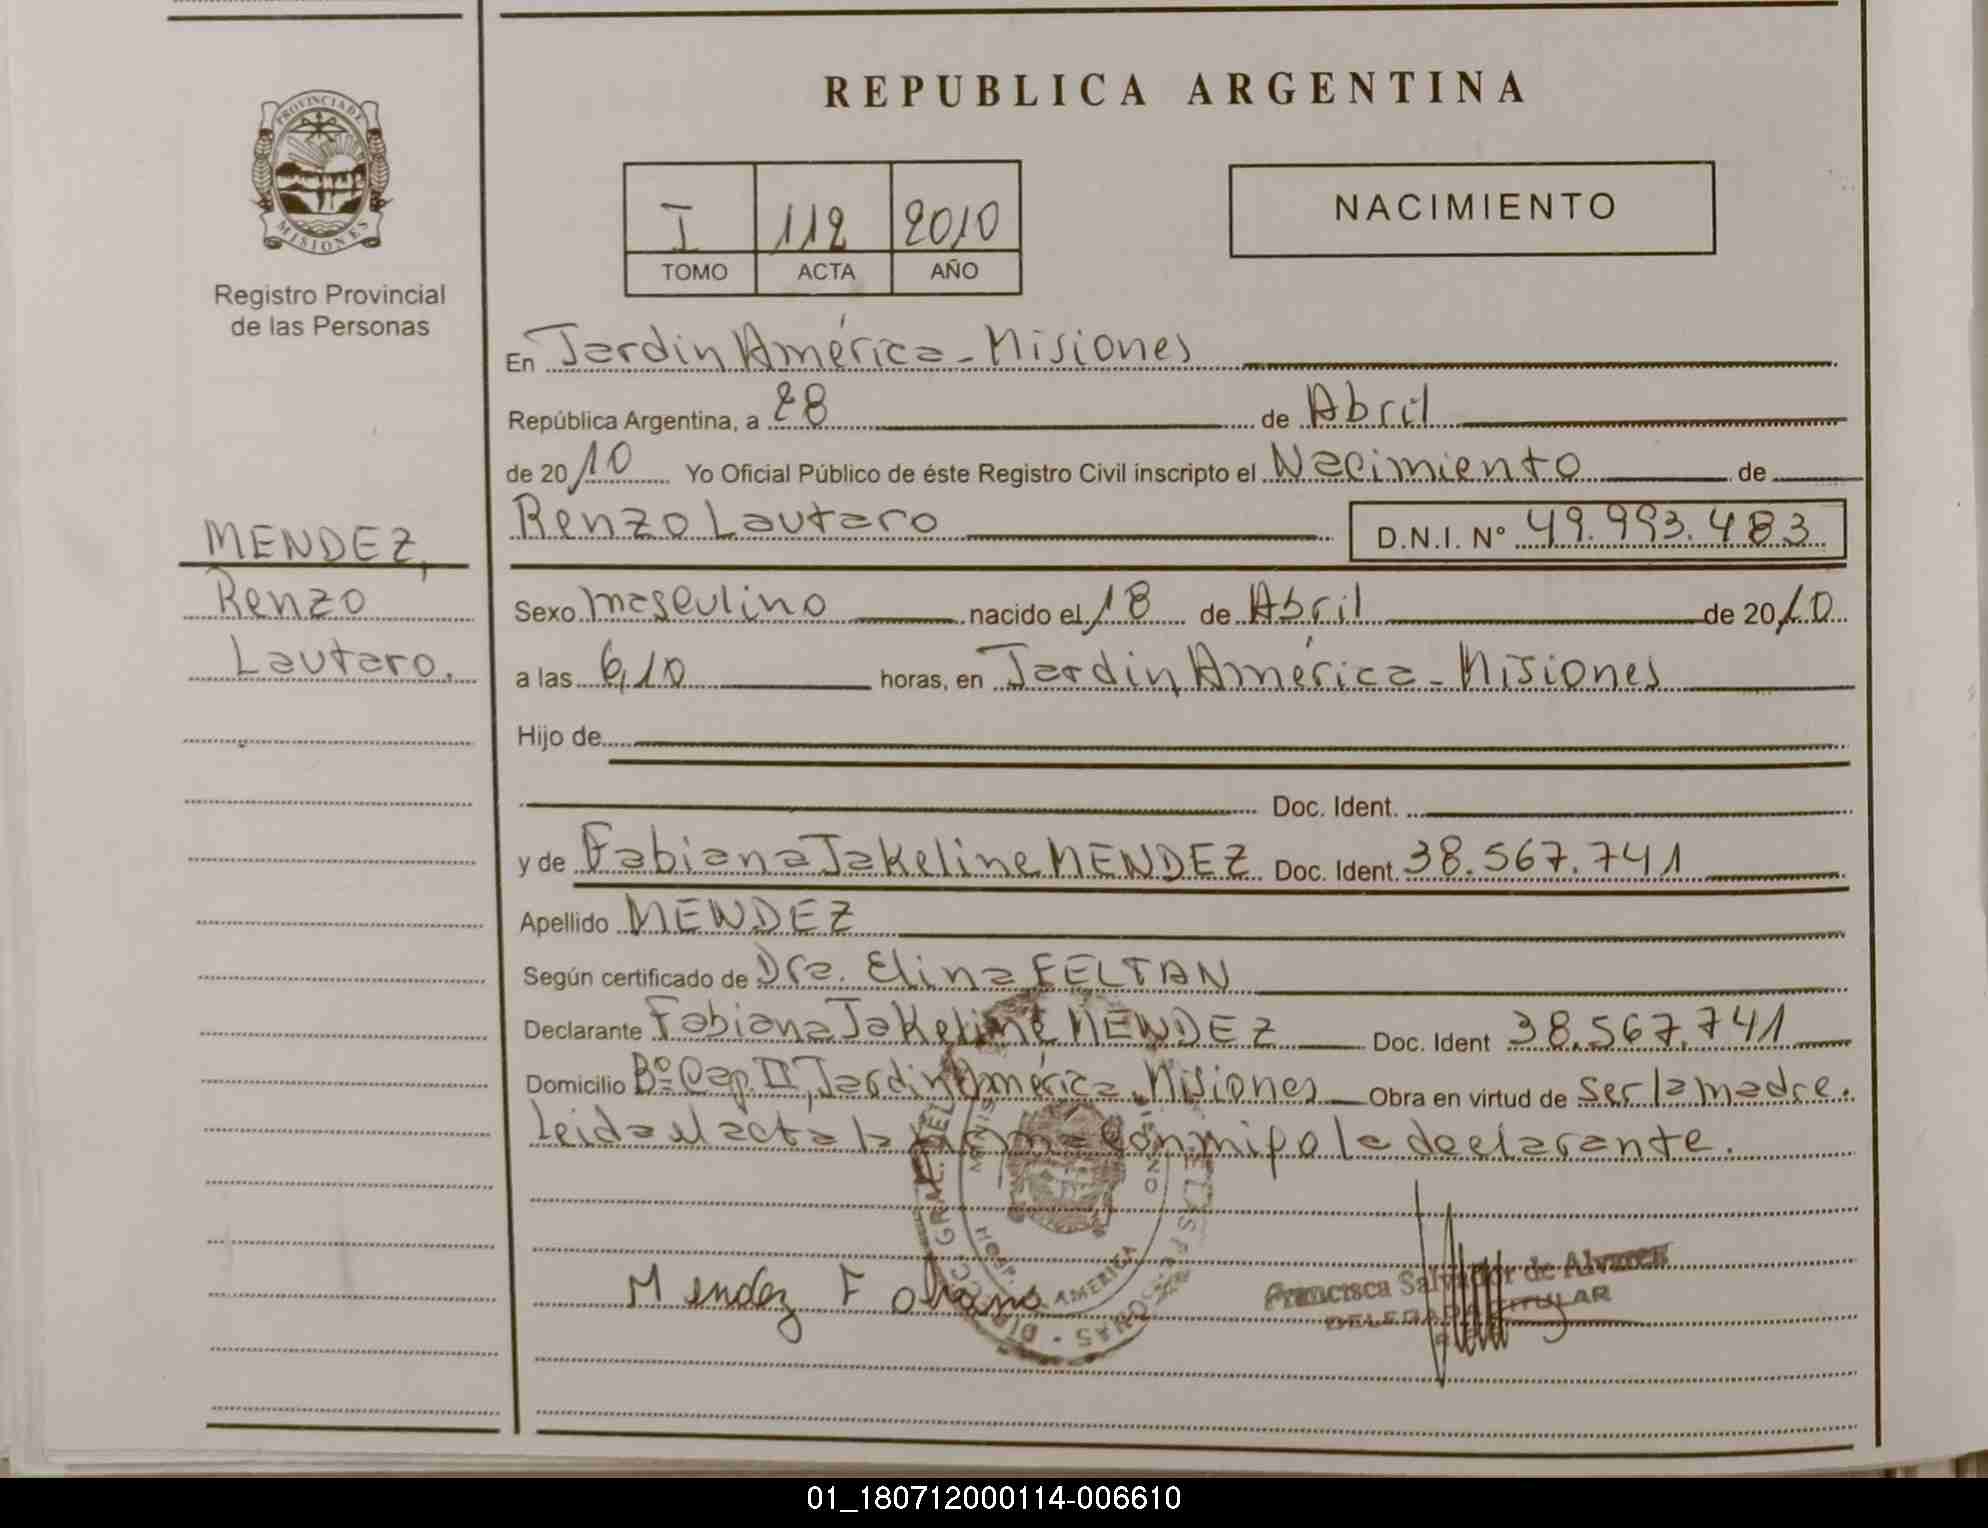 REPUBLICA ARGENTINA
PROVINCIA DE
MISIONES
Registro Provincial
de las Personas
I 112 2010
TOMO ACTA AÑO
NACIMIENTO
MENDEZ,
Renzo
Lautaro.
En Jardin América - Misiones
República Argentina, a 28 de Abril
de 2010 Yo Oficial Público de éste Registro Civil inscripto el Nacimiento de
Renzo Lautaro D.N.I. Nº 49.993.483
Sexo masculino nacido el 18 de Abril de 2010
a las 6,10 horas, en Jardin América - Misiones
Hijo de
Doc. Ident.
y de Fabiana Jakeline MENDEZ Doc. Ident. 38.567.741
Apellido MENDEZ
Según certificado de Dra. Elina FELTAN
Declarante Fabiana Jakeline MENDEZ Doc. Ident 38.567.741
Domicilio Bº Cap. II, Jardin América, Misiones Obra en virtud de ser la madre.
Leida el acta la firma conmigo la declarante.
AMERICA
Mendez Fabiana
Francisca Salvador de Alvarez
DELEGADA TITULAR
01_180712000114-006610